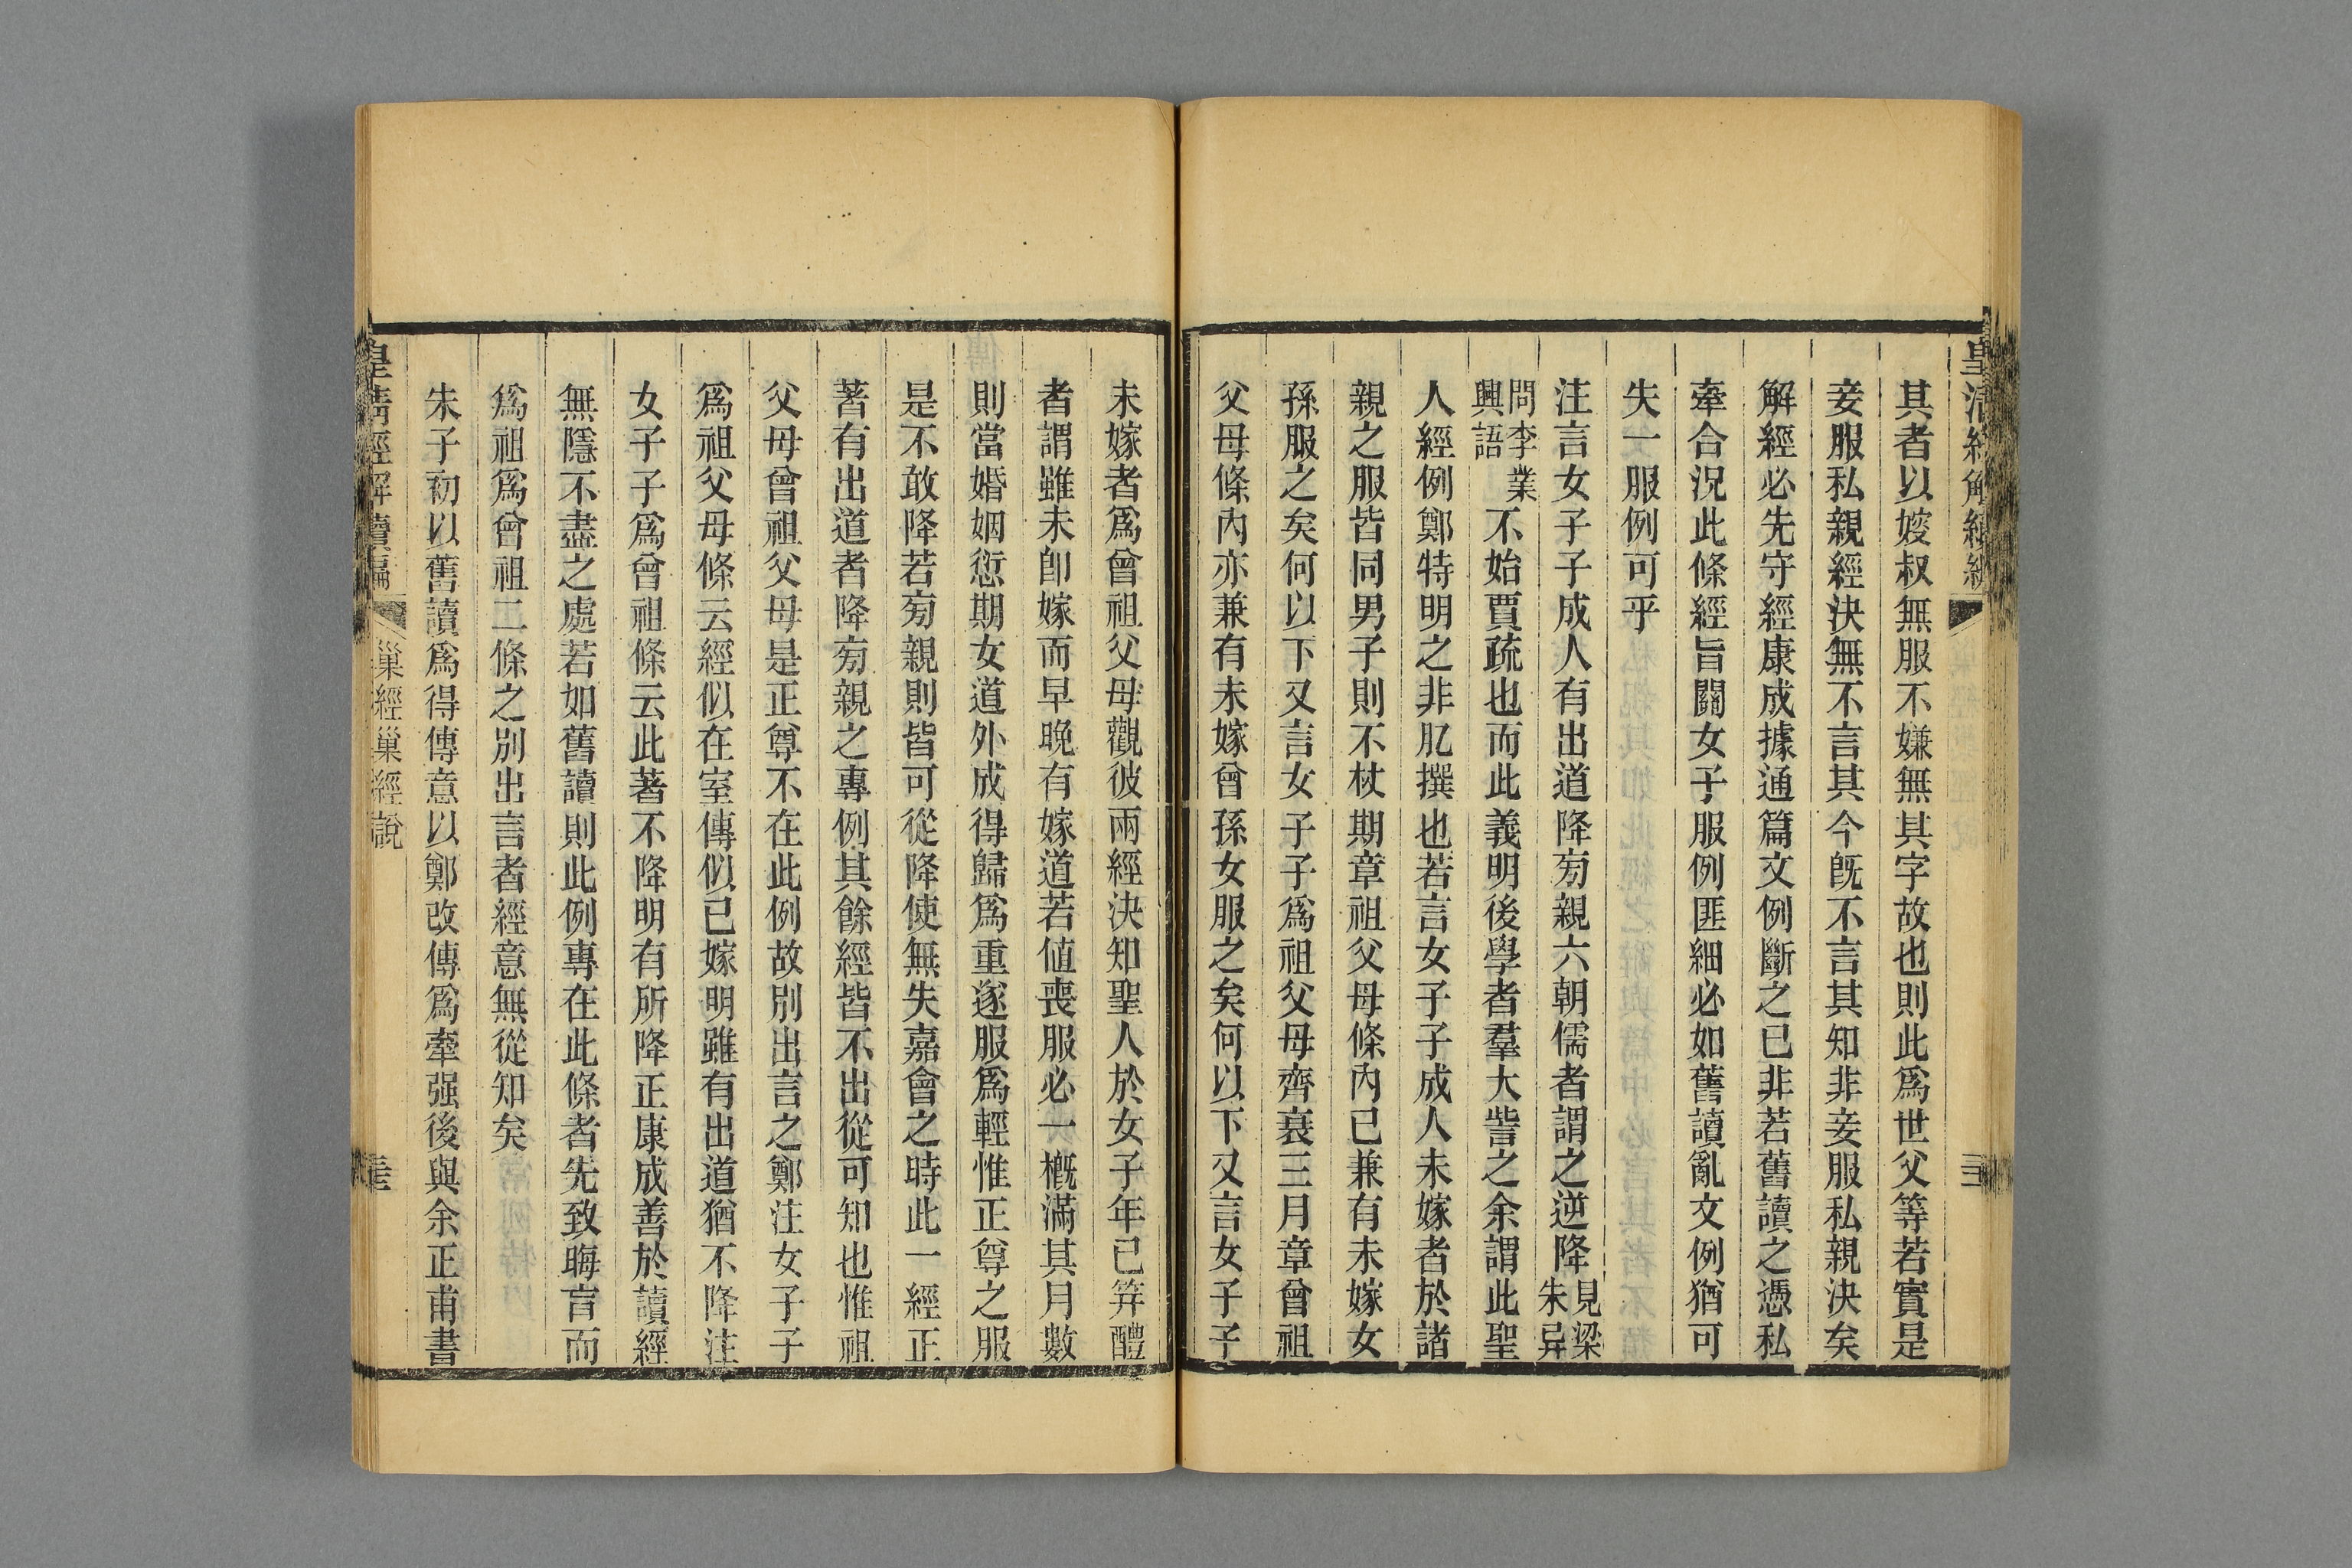 其者以嫂叔無服不嫌無其字故也則此爲世父等若實是
妾服私親經決無不言其今旣不言其知非妾服私親決矣
解經必先守經康成據通篇文例斷之已非若舊讀之憑私
牽合況此條經旨關女子服例匪細必如舊讀亂文例猶可
失一服例可乎
注言女子子成人有出道降旁親六朝儒者謂之逆降見梁朱异
問李業興語不始賈疏也而此義明後學者羣大訾之余謂此聖
人經例鄭特明之非肊撰也若言女子子成人未嫁者於諸
親之服皆同男子則不杖期章祖父母條內已兼有未嫁女
孫服之矣何以下又言女子子爲祖父母齊衰三月章曾祖
父母條內亦兼有未嫁曾孫女服之矣何以下又言女子子
未嫁者爲曾祖父母觀彼兩經決知聖人於女子年已笄醴
者謂雖未卽嫁而早晚有嫁道若値喪服必一槪滿其月數
則當婚姻愆期女道外成得歸爲重遂服爲輕惟正尊之服
是不敢降若旁親則皆可從降使無失嘉會之時此一經正
著有出道者降旁親之專例其餘經皆不出從可知也惟祖
父母曾祖父母是正尊不在此例故別出言之鄭注女子子
爲祖父母條云經似在室傳似已嫁明雖有出道猶不降注
女子子爲曾祖條云此著不降明有所降正康成善於讀經
無隱不盡之處若如舊讀則此例專在此條者先致晦盲而
爲祖爲曾祖二條之別出言者經意無從知矣
朱子初以舊讀爲得傳意以鄭改傳爲牽强後與余正甫書
皇淸經解續編
巢經巢經說